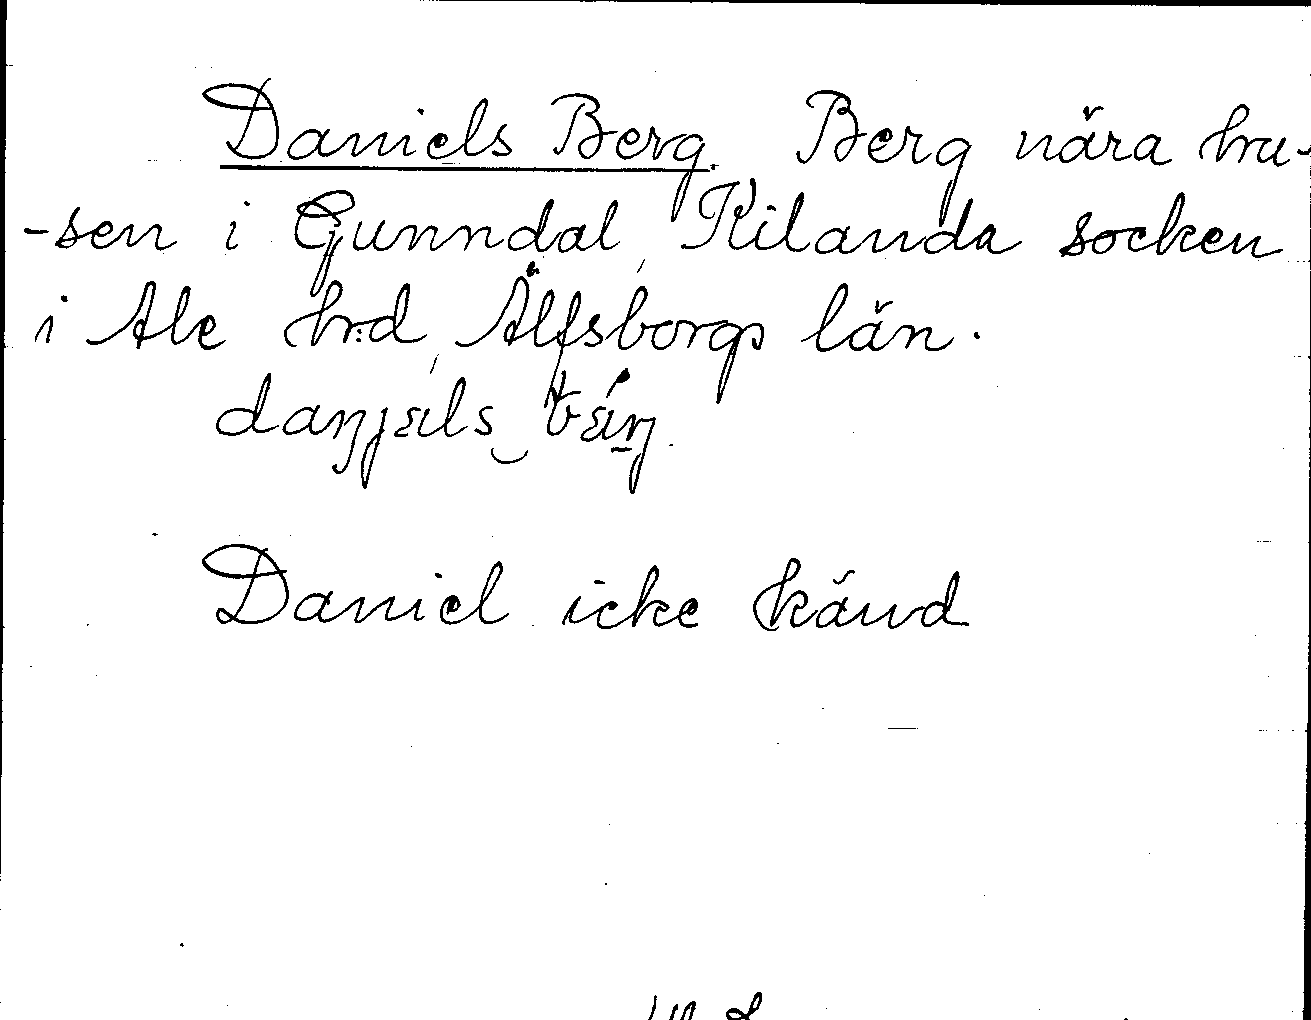 Daniels Berg. Berg nära hu-
-sen i Gunndal, Kilanda socken
i Ale hrd, Älfsborgs län.
Daniel icke känd